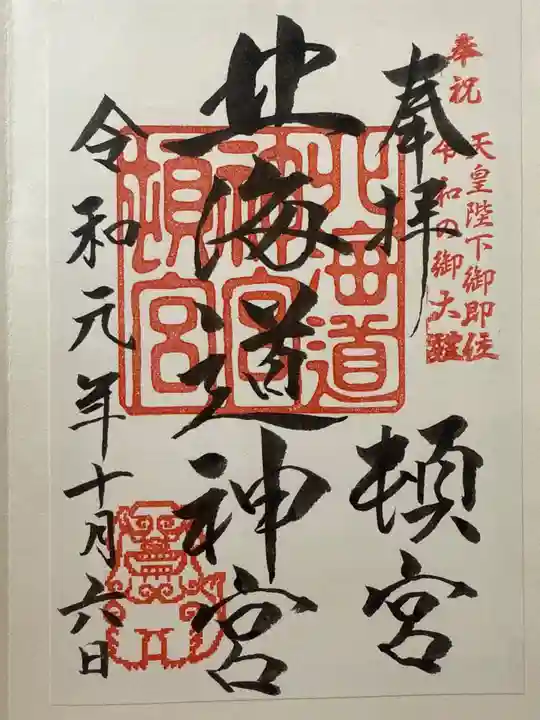 奉祝
天皇陛下御即位
令和の御大礼
奉拝
頓宮
北海道神宮
北海道
神宮
頓宮
令和元年十月六日